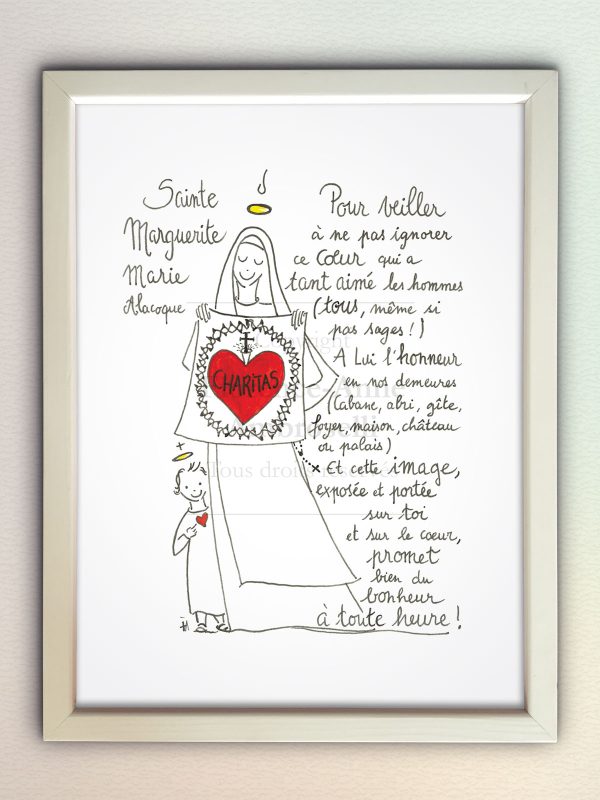 Sainte
Marguerite
Marie
Alacoque
Pour veiller
à ne pas ignorer
ce Cœur qui a
tant aimé les hommes
(tous, même si
pas sages !)
A Lui l'honneur
en nos demeures
(Cabane, abri, gîte,
foyer, maison, château
ou palais)
Et cette image,
exposée et portée
sur toi
et sur le cœur,
promet
bien du
bonheur
à toute heure !
CHARITAS
Copyright
Tous droits